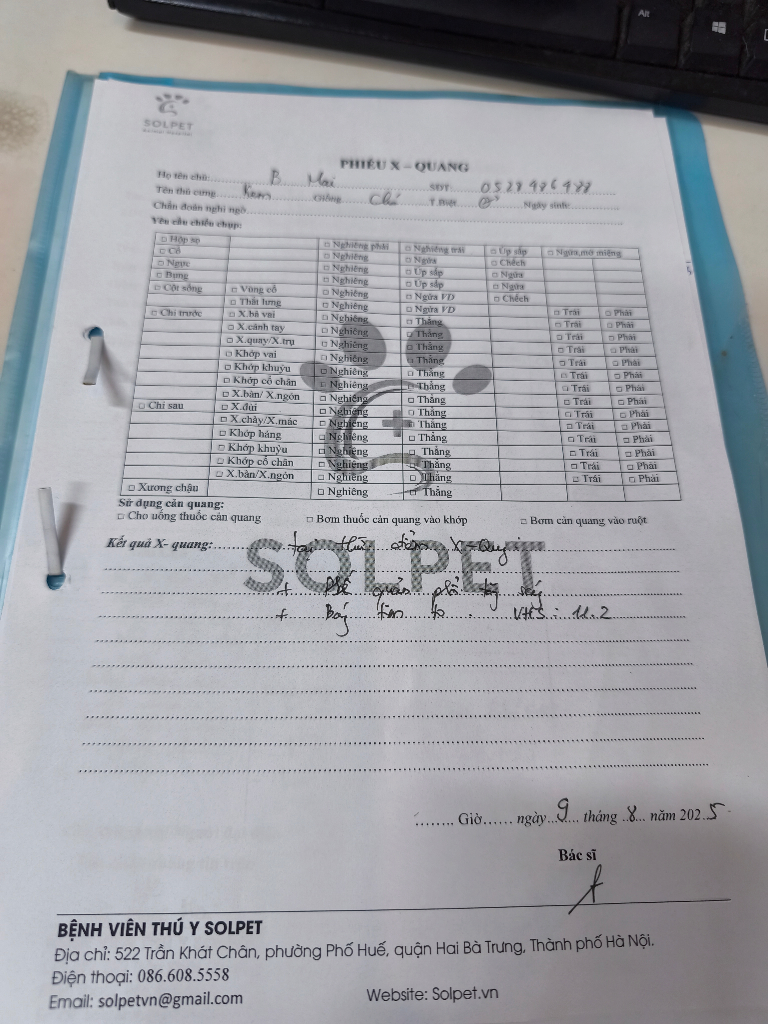 Alt
SOLPET
PHIẾU X – QUANG
Họ tên chủ: B Mai SĐT:
Tên thú cưng Kem Giống Chó T.Biệt Ngày sinh:
Chẩn đoán nghi ngờ
Yêu cầu chiếu chụp:
□ Hộp sọ □ Nghiêng phải □ Nghiêng trái □ Úp sấp □ Ngửa, mở miệng
□ Cổ □ Nghiêng □ Ngửa □ Chếch
□ Ngực □ Nghiêng □ Úp sấp □ Ngửa
□ Bụng □ Nghiêng □ Úp sấp □ Ngửa
□ Cột sống □ Vùng cổ □ Nghiêng □ Ngửa VD □ Chếch
□ Thắt lưng □ Nghiêng □ Ngửa VD
□ Chi trước □ X.bả vai □ Nghiêng □ Thẳng □ Trái □ Phải
□ X.cánh tay □ Nghiêng □ Thẳng □ Trái □ Phải
□ X.quay/X.trụ □ Nghiêng □ Thẳng □ Trái □ Phải
□ Khớp vai □ Nghiêng □ Thẳng □ Trái □ Phải
□ Khớp khuỷu □ Nghiêng □ Thẳng □ Trái □ Phải
□ Khớp cổ chân □ Nghiêng □ Thẳng □ Trái □ Phải
□ X.bàn/ X.ngón □ Nghiêng □ Thẳng □ Trái □ Phải
□ Chi sau □ X.đùi □ Nghiêng □ Thẳng □ Trái □ Phải
□ X.chày/X.mác □ Nghiêng □ Thẳng □ Trái □ Phải
□ Khớp háng □ Nghiêng □ Thẳng □ Trái □ Phải
□ Khớp khuỷu □ Nghiêng □ Thẳng □ Trái □ Phải
□ Khớp cổ chân □ Nghiêng □ Thẳng □ Trái □ Phải
□ X.bàn/X.ngón □ Nghiêng □ Thẳng □ Trái □ Phải
□ Xương chậu □ Nghiêng □ Thẳng
Sử dụng cản quang:
□ Cho uống thuốc cản quang □ Bơm thuốc cản quang vào khớp □ Bơm cản quang vào ruột
Kết quả X- quang: Tại thời điểm X-Quang
SOLPET
+ Phế quản phổi tăng sáng
+ Bóng tim to. VHS: 11.2
Giờ ngày 9 tháng 8 năm 2025
Bác sĩ
BỆNH VIÊN THÚ Y SOLPET
Địa chỉ: 522 Trần Khát Chân, phường Phố Huế, quận Hai Bà Trưng, Thành phố Hà Nội.
Điện thoại: 086.608.5558
Email: solpetvn@gmail.com Website: Solpet.vn